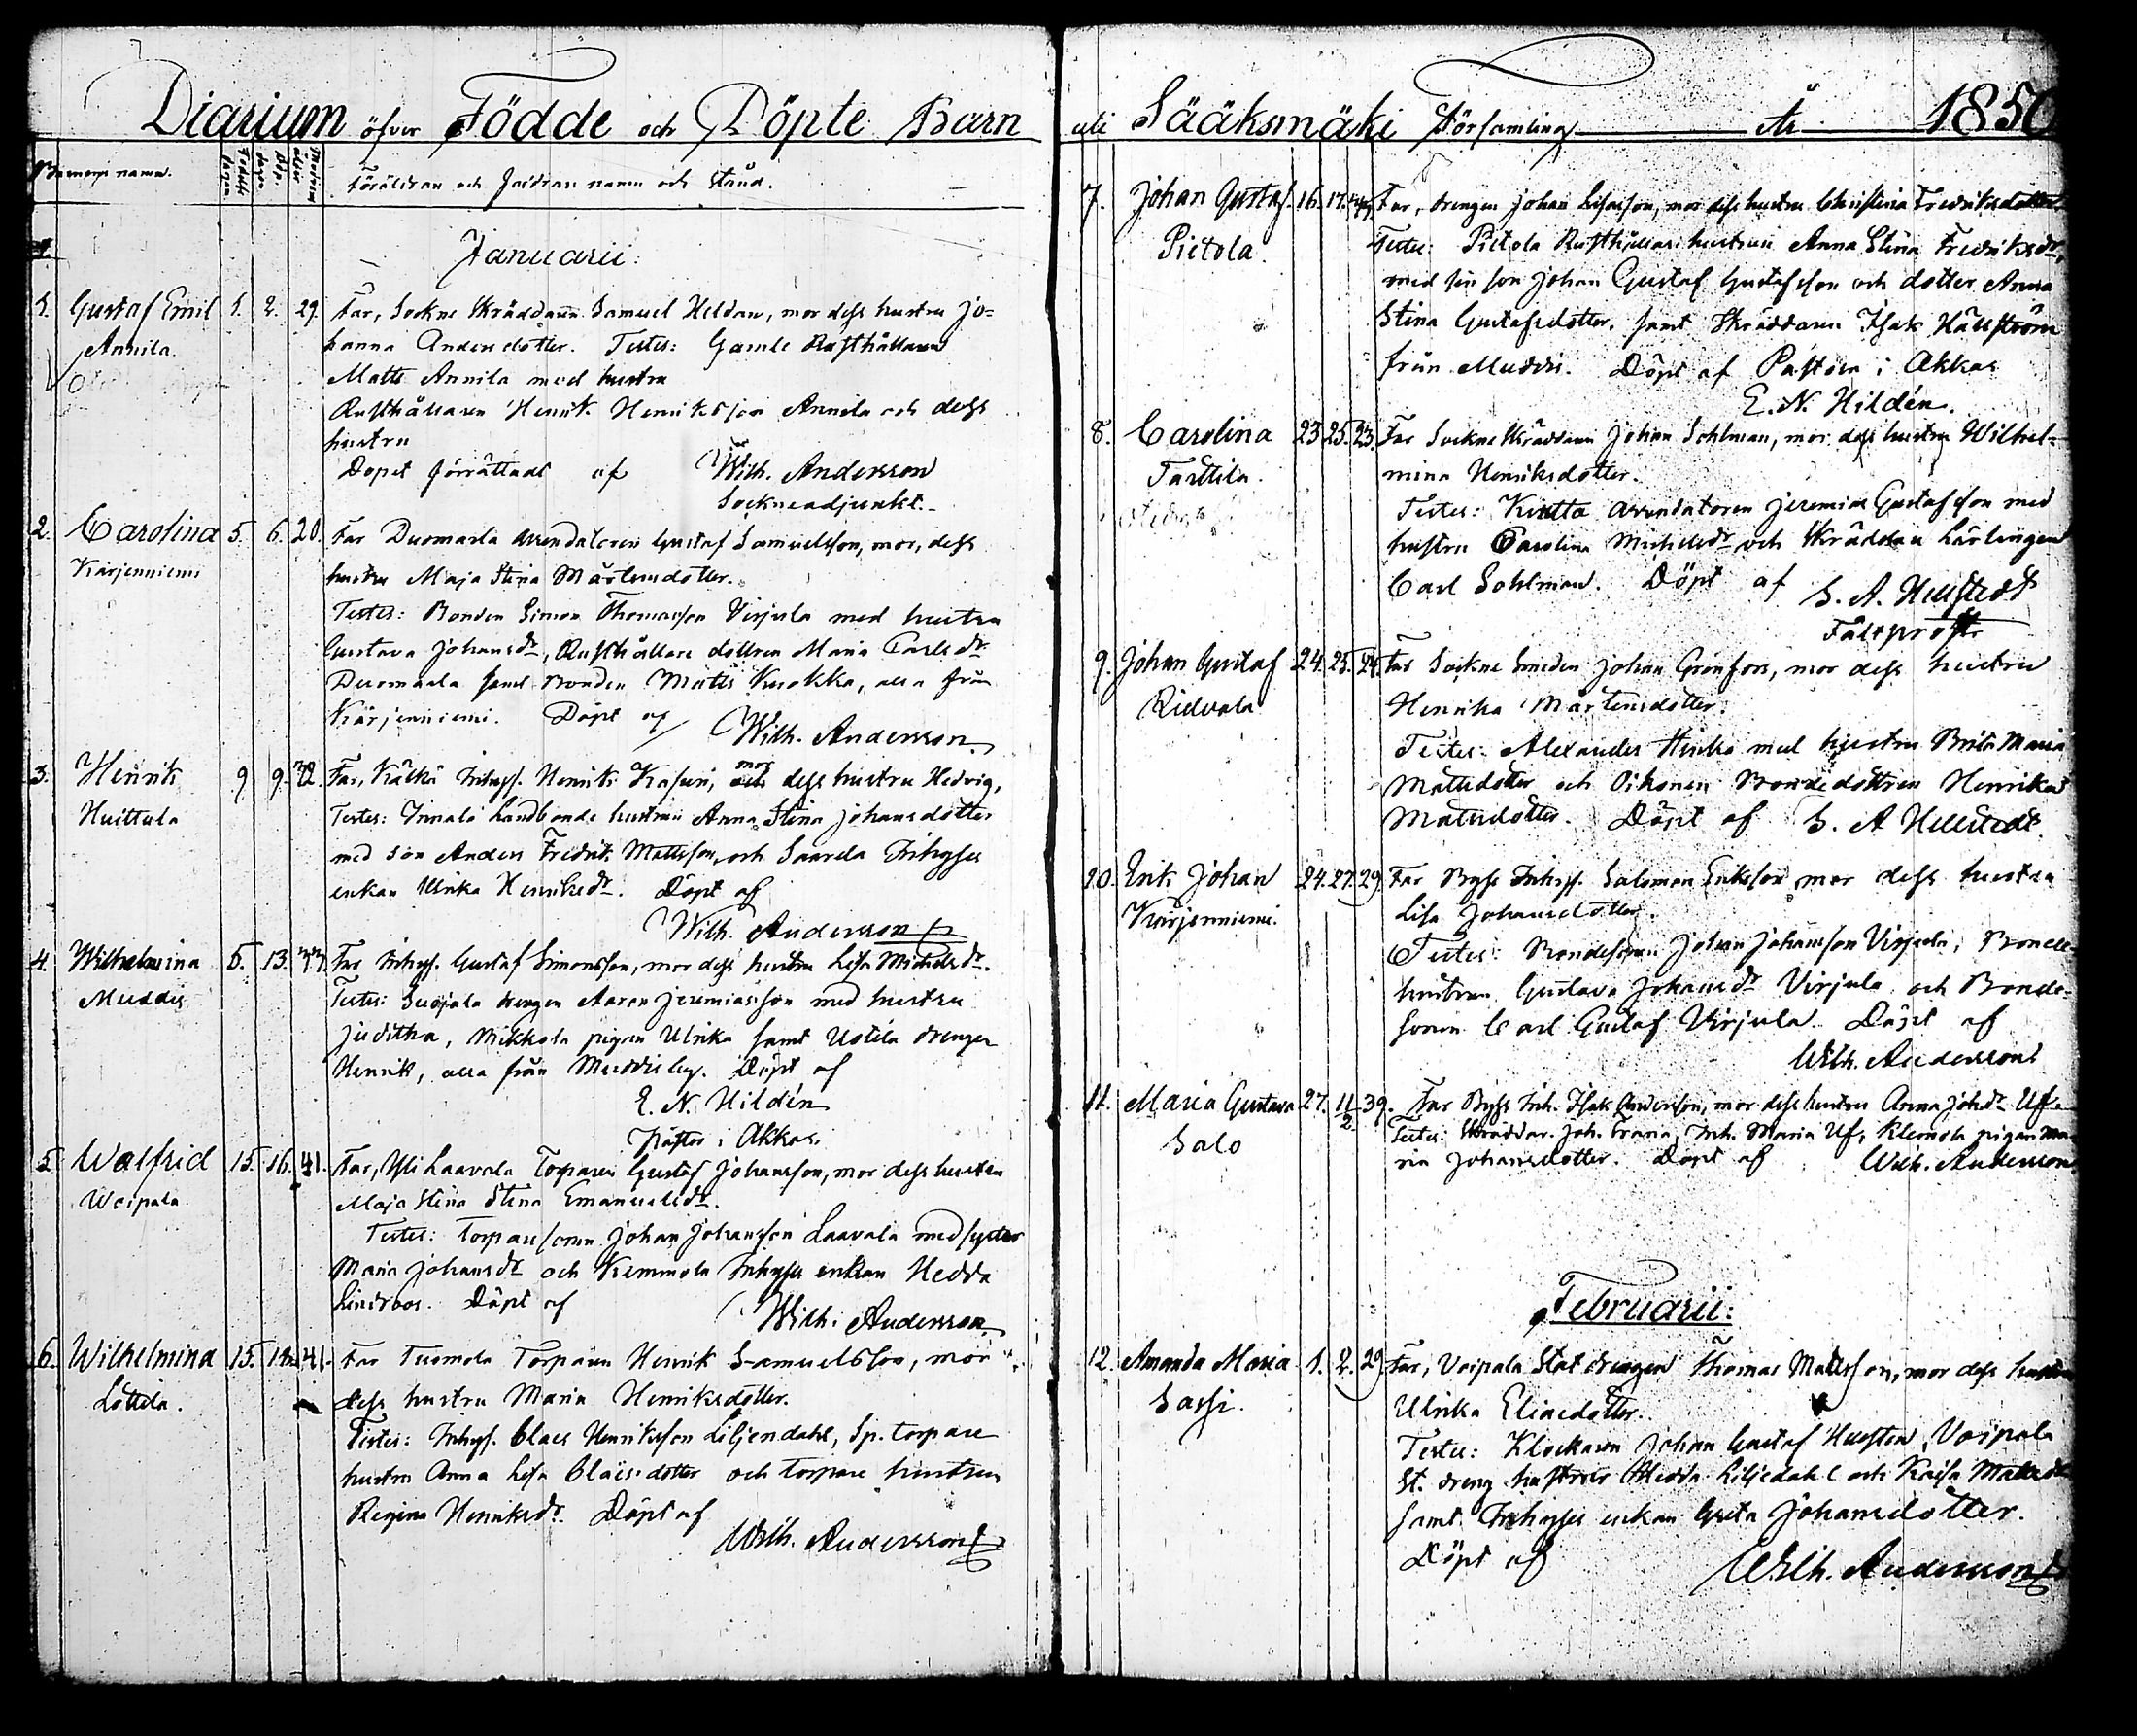 Diarium öfver Födde och Döpte Barn
Barnens namn. Födelse dagen Döp. dagen Modrens ålder Föräldrars och Faddrars namn och stånd.
Januarii:
1. Gustaf Emil 1. 2. 29. Far, Sockne Skräddaren Samuel Heldan, mor dess hustru Jo-
Annila. hanna Andersdotter. Testes: Gamle Rusthållaren
Matts Annila med hustru
Rusthållaren Henrik Henriksson Annila och dess
hustru
Dopet förrättadt af Wilh. Andersson
Sockneadjunkt.
2. Carolina 5. 6. 20. Far Duomarla arrendatoren Gustaf Samuelsson, mor, dess
Kärjenniemi hustru Maja Stina Mårtensdotter.
Testes: Bonden Simon Thomasson Virjula med hustru
Gustava Johansdr, Rusthållare dottren Maria Carlsdr
Duomarla samt Bonden Matts Knokka, alla från
Kärjenniemi. Döpt af Wilh. Andersson
3. Henrik 9. 9. Far, Kälkä Inhys. Henrik Kasuri, mor dess hustru Hedvig,
Huittula Testes: Innala Landbonde hustrun Anna Stina Johansdotter
med son Anders Fredrik Mattsson, och Saarela Inhyses
enkan Ulrika Henriksdr. Döpt af
Wilh. Andersson
4. Wilhelmina 5. 13. 33. Far Inhys. Gustaf Simonsson, mor dess hustru Lisa Michelsdr.
Muddis Testes: Suojala drengen Aaron Jeremiasson med hustru
Juditha, Mikkola pigan Ulrika samt Ustila drengen
Henrik, alla från Muddis by. Döpt af
E. N. Hildén
Pastor i Akkas.
5. Walfrid 15. 16. 41. Far, Yli Laavala Torparen Gustaf Johansson, mor dess hustru
Woipala Maja Stina Stina Emanuelsdr.
Testes: Torpare sonen Johan Johansson Laavala med syster
Maria Johansdr och Kemmola Inhyses enkan Hedda
Lindroos. Döpt af Wilh. Andersson
6. Wilhelmina 15. 18. 41. Far Tuomola Torparen Henrik Samuelsson, mor
Lottila. dess hustru Maria Henriksdotter.
Testes: Inhys. Claes Henriksson Liljendahl, Sp. torpare
hustru Anna Lisa Claësdotter och torpare hustrun
Regina Henriksdr. Döpt af
Wilh. Andersson
uti Sääksmäki Församling År 1850
7. Johan Gustaf. 16. 17. Far, drengen Johan Lisasson, mor dess hustru Christina Fredriksdotter.
Pietola. Testes: Pietola Rusthållare hustrun Anna Stina Fredriksdr,
med sin son Johan Gustaf Gustafsson och dotter Anna
Stina Gustafsdotter. samt Skräddaren Isak Hällström
från Muddis. Döpt af Pastorn i Akkas
E. N. Hildén.
8. Carolina 23. 25. 23. Far Sockne Skräddaren Johan Sohlman, mor dess hustru Wilhel-
Tarttila. mina Henriksdotter.
Testes: Kentta arrendatoren Jeremias Gustafsson med
hustru Carolina Michelsdr och Skräddare Lärlingen
Carl Sohlman. Döpt af S. A. Hellstedt
Fältprost.
9. Johan Gustaf 24. 25. 24. Far Sockne Smeden Johan Grönfors, mor dess hustru
Ridvala Henrika Mårtensdotter.
Testes: Alexander Hinka med hustru Brita Maria
Mattsdotter och Oihonen Bondedottren Henrika
Mattsdotter. Döpt af S. A Hellstedt.
10. Erik Johan 24. 27. 29. Far Byss Inhys. Salomon Eriksson mor dess hustru
Kärjenniemi. Lisa Johansdotter.
Testes: Bondesonen Johan Johansson Virjula, Bonde-
hustrun Gustava Johansdr Virjula och Bonde-
sonen Carl Gustaf Virjula. Döpt af
Wilh. Andersson
11. Maria Gustava 27. 11/2 39. Far Byss Inh. Isak Andersson, mor dess hustru Anna Johsdr Uf.
Salo Testes: Skräddar. Joh. Inh. Maria Uf, Kleemola pigan Ma-
ria Johansdotter. Döpt af Wilh. Andersson
Februarii:
12. Amanda Maria 1. 2. 29. Far, Voipala Stat drengen Thomas Mattsson, mor dess hustru
Sassi. Ulrika Eliaedotter.
Testes: Klockaren Johan Gustaf Hellsten, Voipala
St. dreng hustrur Hedda Liljedahl och Kaisa Mattsdr
samt Inhyses enkan Greta Johansdotter.
Döpt af Wilh. Andersson